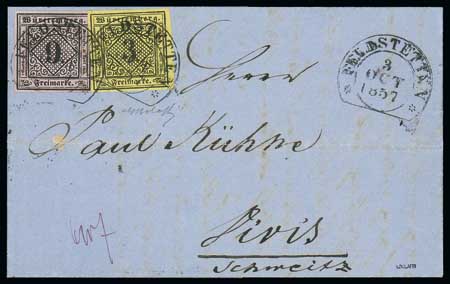 Württemberg.
9
Freimarke.
Württemberg.
3
Freimarke.
FELDSTETTEN
3
OCT
1857
Herrn
Paul Kühne
Vivis
Schweitz